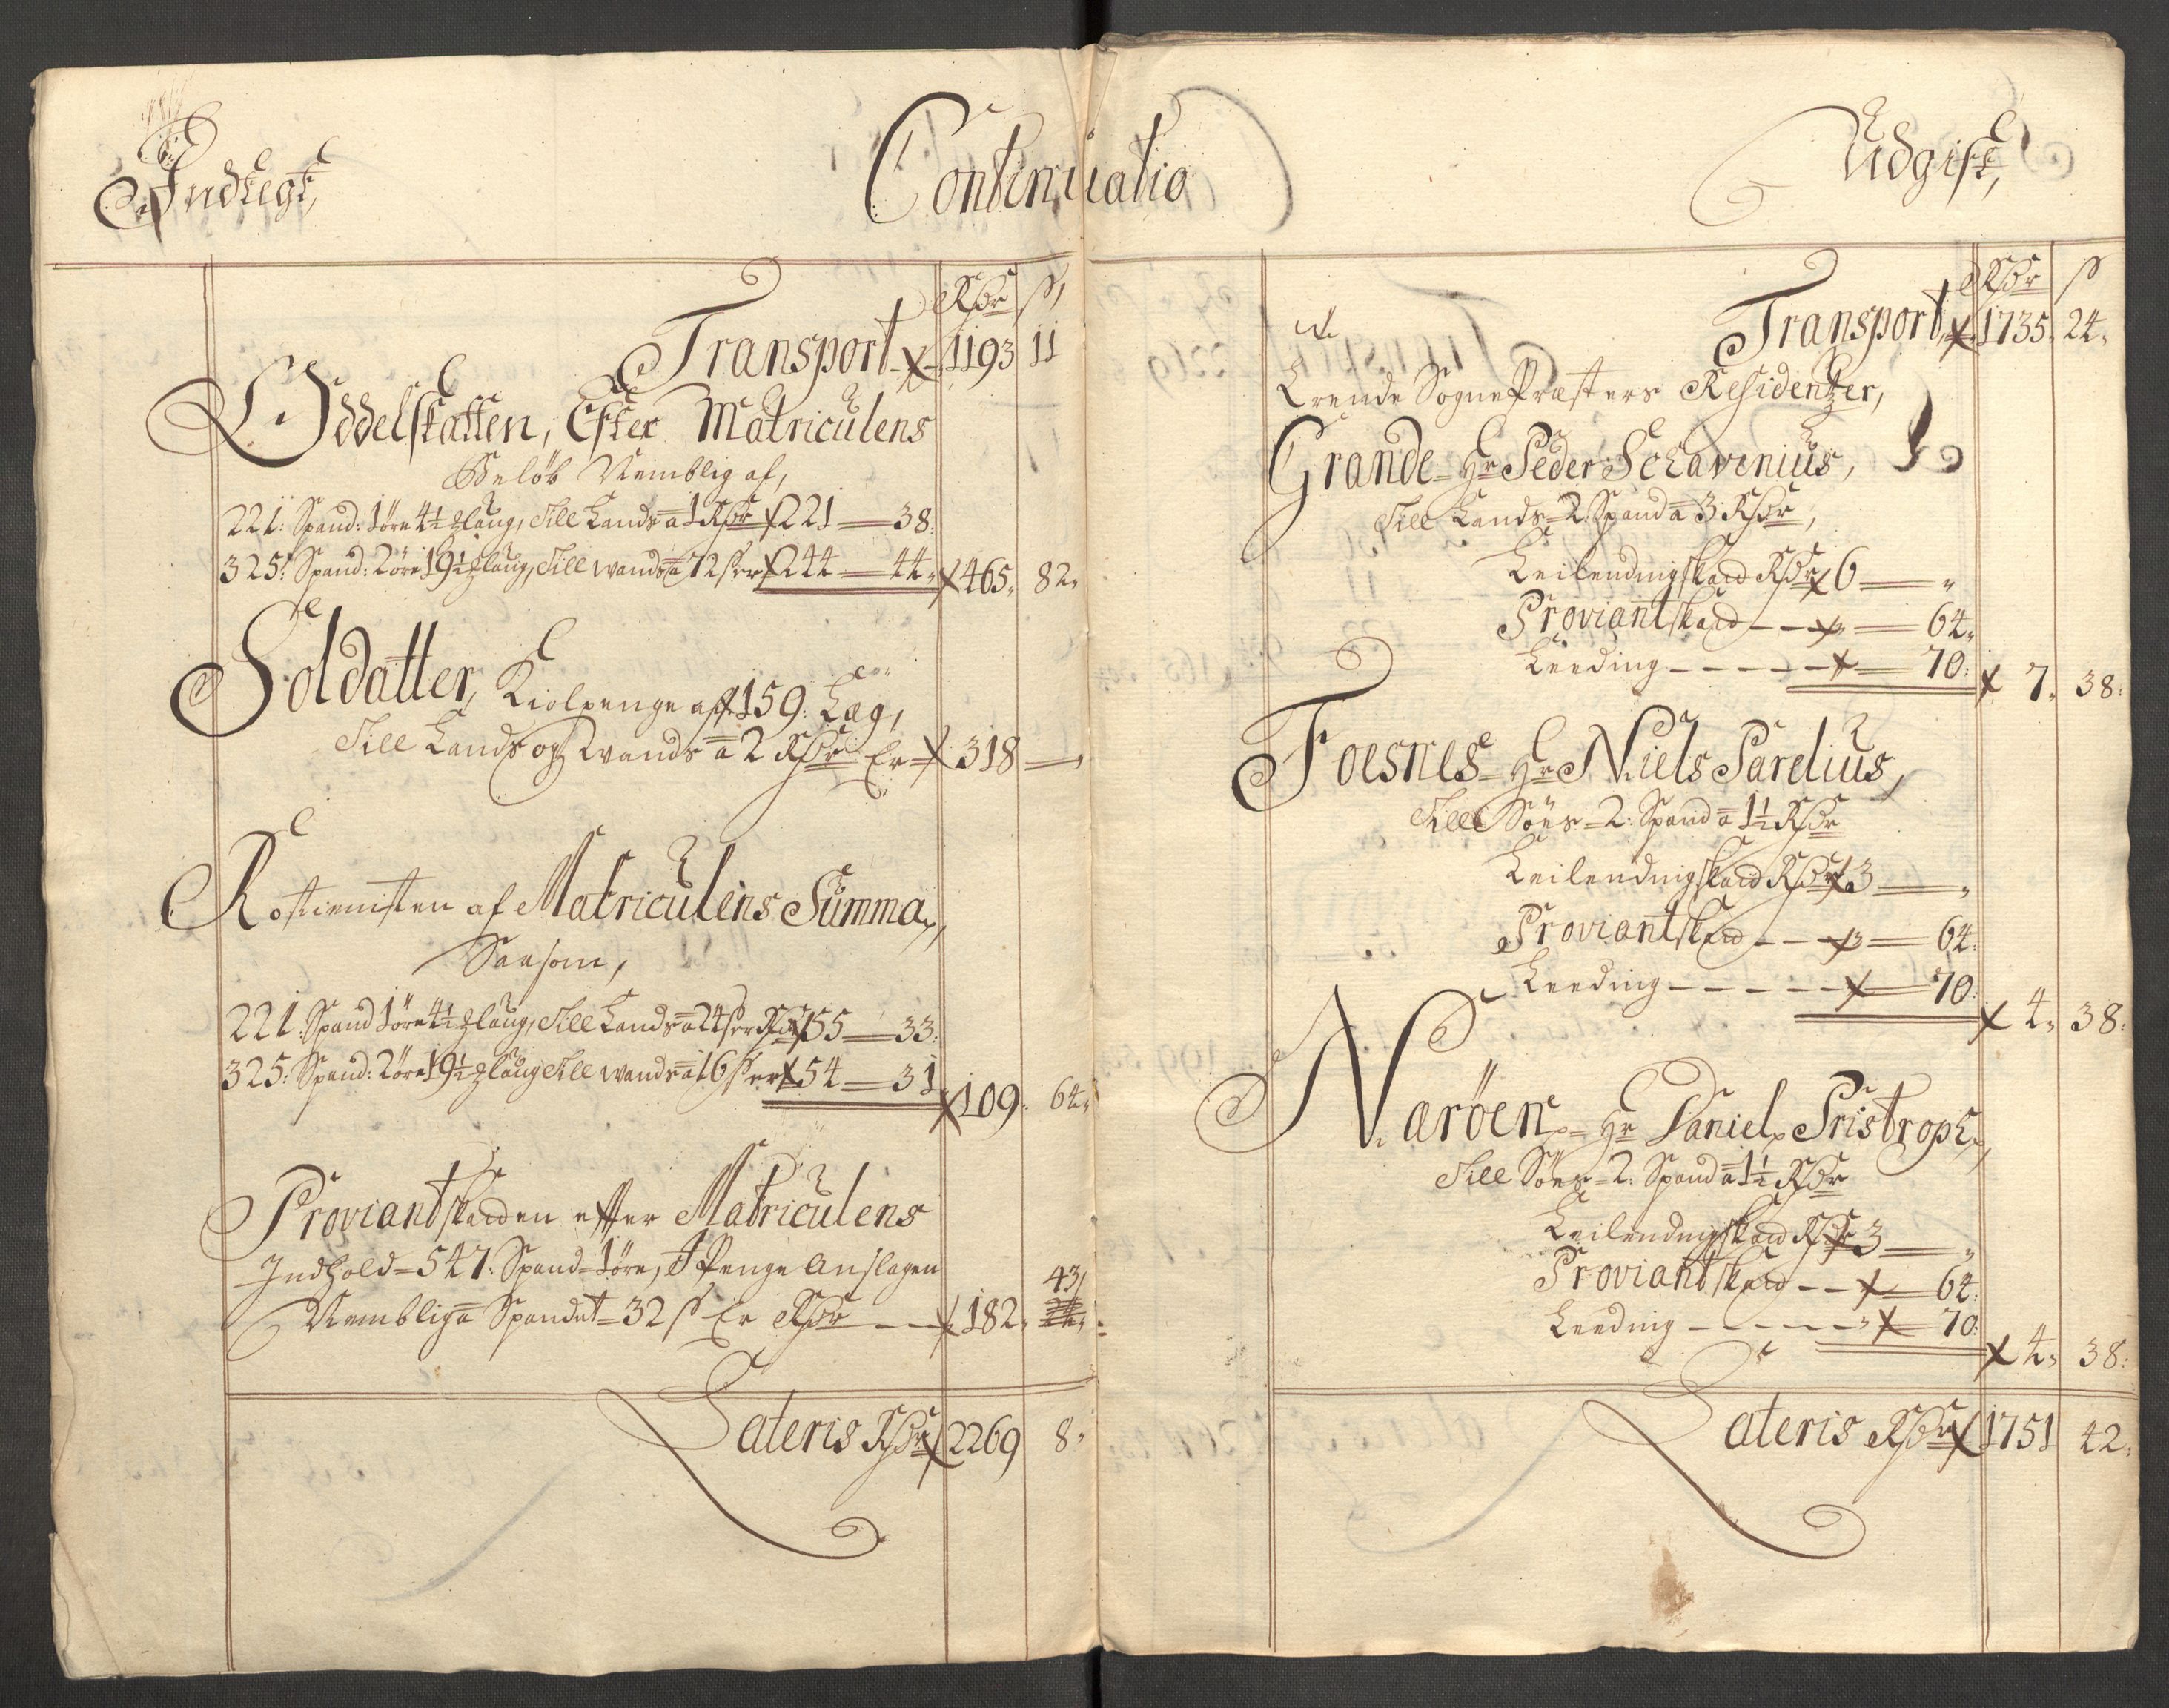 Indtegt,
Continuatio
Rdr ß,
Transport 1193 11
Oddelskatten, Efter Matriculens
Beløb Nemblig af,
221: Spand: 1 öre 4½ Mlaug, Till Lands a 1 Rdr 221 — 38:
325: Spand: 2 öre 19½ Mlaug, Till wands a 72 ß er 244 — 44 465, 82,
Soldatter Kiolpenge af 159: Læg,
Till Lands og wands a 2 Rdr Er 318 —
Rostienisten af Matriculens Summa,
Saasom,
221: Spand 1 öre 4½ Mlaug, Till Lands a 24 ß er Rdr 55 — 33:
325: Spand: 2 öre 19½ Mlaug Till wands a 16 ß er 54 — 31 109: 64,
Proviantskaden efter Matriculens
Indhold = 547: Spand = 1 öre, I Penge Anslagen
43/
Nemblig a Spandet = 32 ß Er Rdr — 182,
Lateris Rdr 2269 8,
Udgift,
Rdr ß
Transport, 1735, 24,
Trende SognePræsters Residentzer,
Grande = Hr Peder Schavenius,
Till Lands = 2: Spand a 3 Rdr,
Leilendingskad Rdr 6 — „
Proviantskad — 64,
Leeding — 70: 7, 38:
Foesnes = Hr Niels Parelius,
Till Söes = 2: Spand a 1½ Rdr
Leilendingskad Rdr 3 — „
Proviantskad — 64:
Leeding — 70: 4, 38:
Naröen = Hr Daniel Pristroph,
Till Söes = 2: Spand a 1½ Rdr
Leilendingskad Rdr 3 — „
Proviantskad — 64:
Leeding — 70: 4, 38:
Lateris Rdr 1751 42: